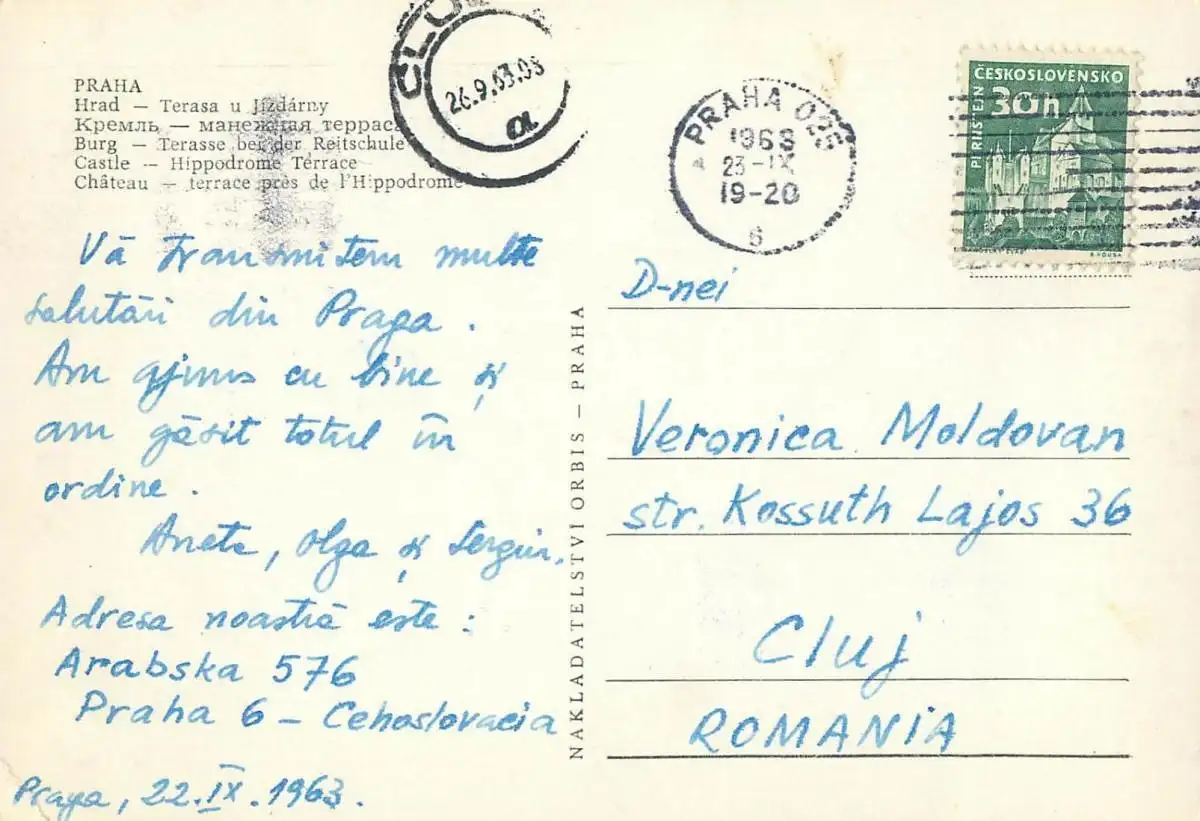 PRAHA
Hrad — Terasa u Jízdárny
Кремль — манежная терраса
Burg — Terasse bei der Reitschule
Castle — Hippodrome Terrace
Château — terrace près de l'Hippodrome
CLUJ
26.9.63.08
a
PRAHA 025
1963
23-IX
19-20
6
ČESKOSLOVENSKO
30h
PERNŠTEJN
Vă transmitem multe
salutări din Praga.
Am ajuns cu bine și
am găsit totul în
ordine.
Aneta, Olga și Sergiu.
Adresa noastră este:
Arabska 576
Praha 6 – Cehoslovacia
Praga, 22.IX.1963.
NAKLADATELSTVI ORBIS – PRAHA
D-nei
Veronica Moldovan
str. Kossuth Lajos 36
Cluj
ROMANIA